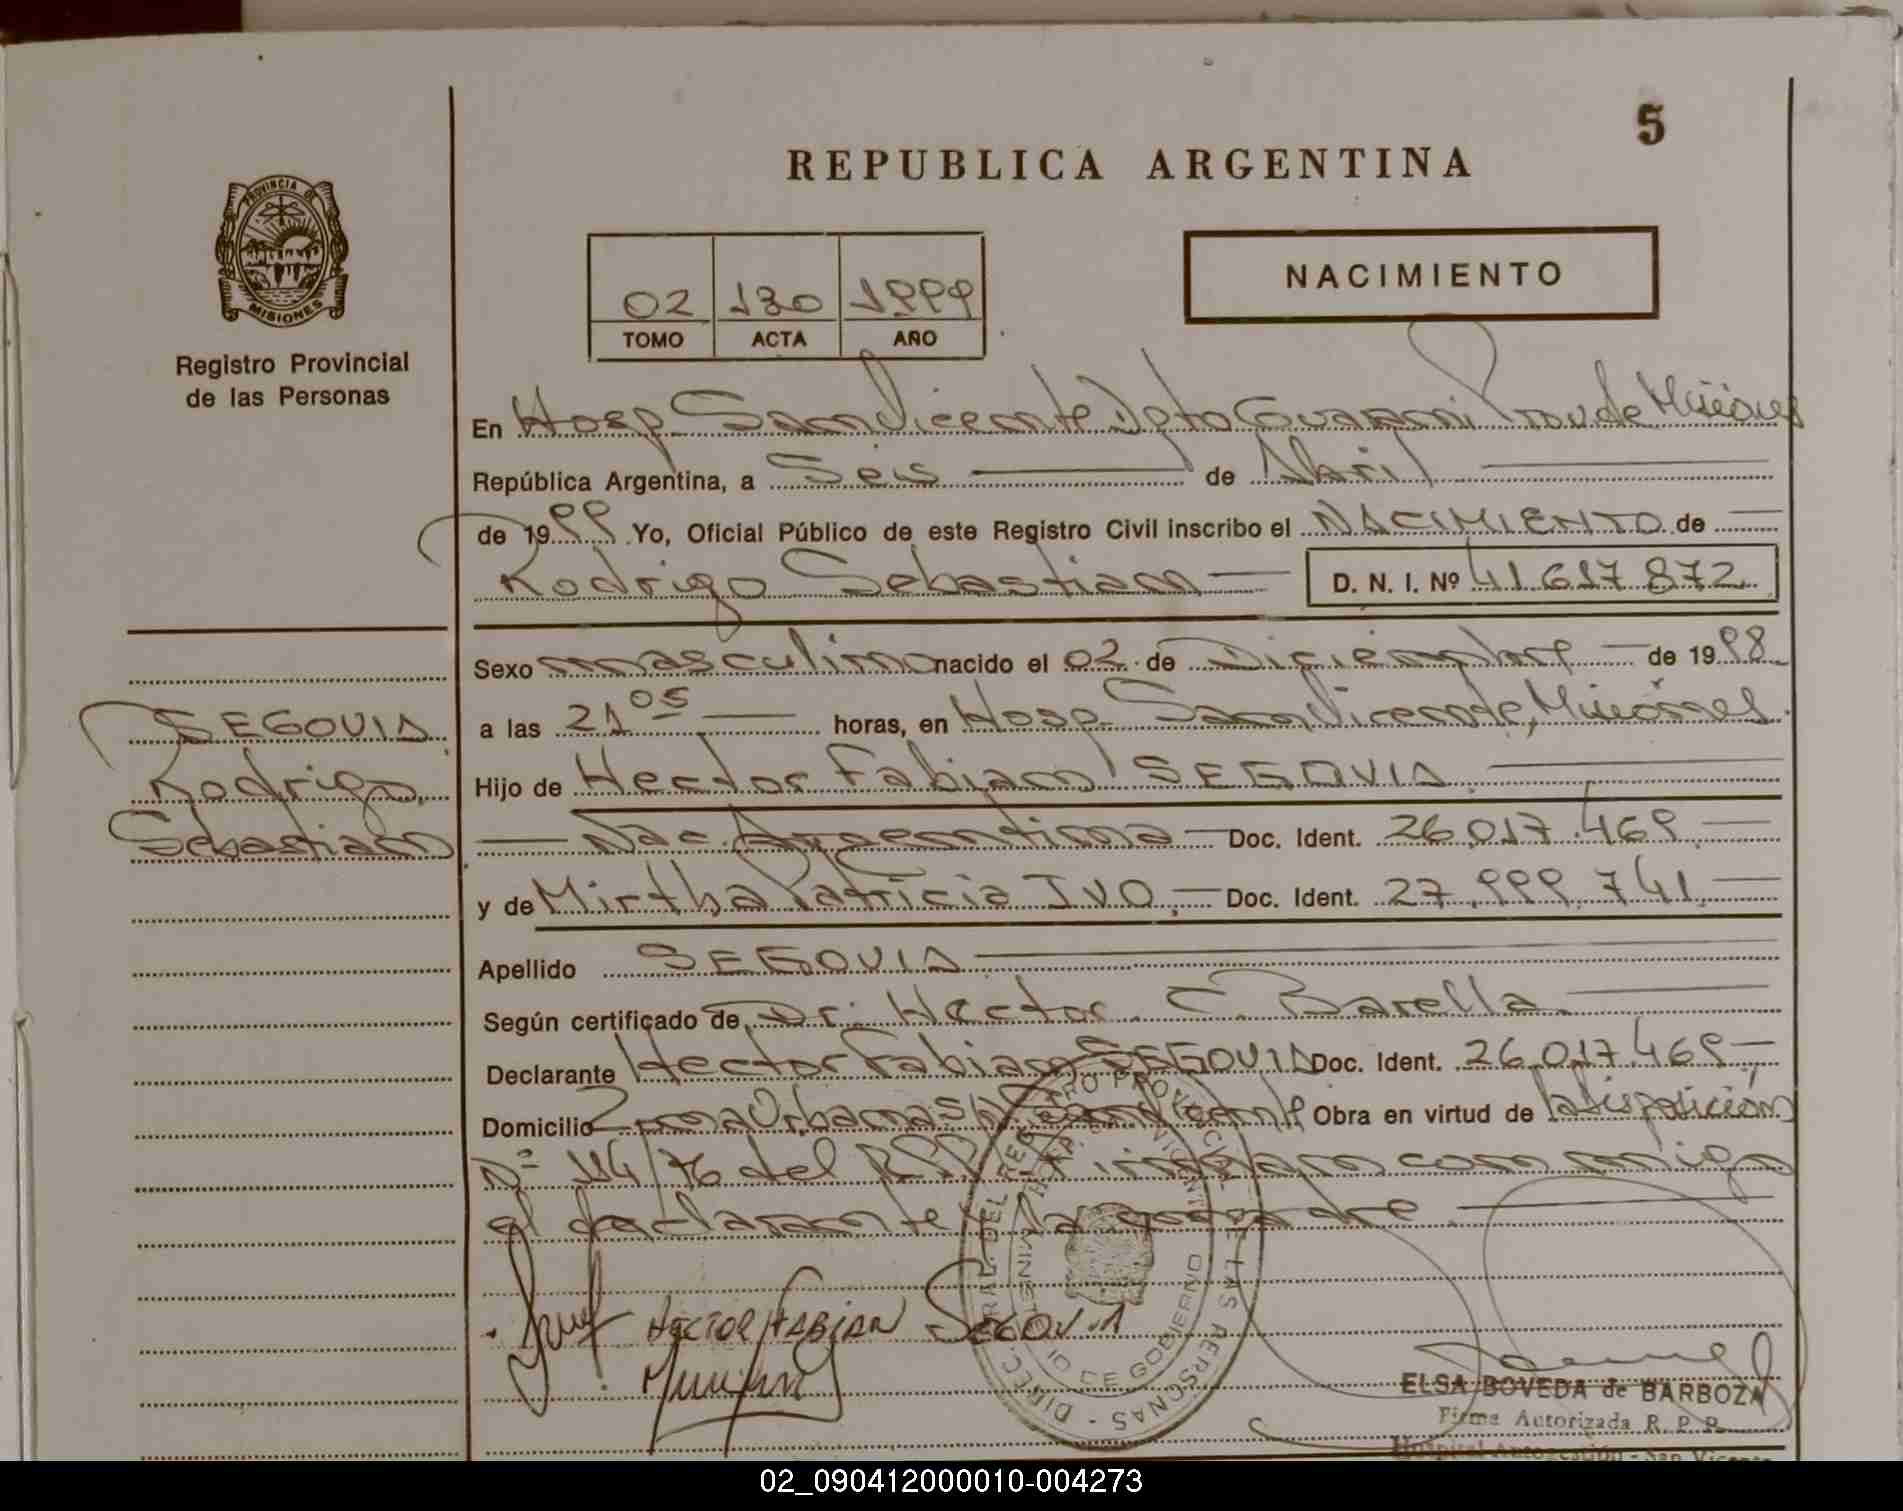 5
REPUBLICA ARGENTINA
PROVINCIA DE
MISIONES
Registro Provincial
de las Personas
02 130 1999
TOMO ACTA AÑO
NACIMIENTO
En Hosp. San Vicente Dpto Guarani Prov. de Misiones
República Argentina, a Seis de Abril
de 1999 Yo, Oficial Público de este Registro Civil inscribo el NACIMIENTO de
Rodrigo Sebastian D. N. I. Nº 41.617.872
Sexo masculino nacido el 02 de Diciembre de 1998
a las 21 05 horas, en Hosp. San Vicente, Misiones
Hijo de Hector Fabian SEGOVIA
Nac. Argentina Doc. Ident. 26.017.469
y de Mirtha Patricia IVO. Doc. Ident. 27.999.741
Apellido SEGOVIA
Según certificado de Dr. Hector C. Barella.
Declarante Hector Fabian SEGOVIA Doc. Ident. 26.017.469
Domicilio Zona Urbana S/N San Vicente Obra en virtud de la disposición
Nº 114/76 del R.P.P. Firman conmigo
el declarante y la madre.
SEGOVIA
Rodrigo
Sebastian
HECTOR FABIAN SEGOVIA
DIREC. GRAL. DEL REGISTRO PROVINCIAL DE LAS PERSONAS
MINISTERIO DE GOBIERNO
ELSA BOVEDA de BARBOZA
Firma Autorizada R. P. P.
Hospital Autogestión - San Vicente
02_090412000010-004273